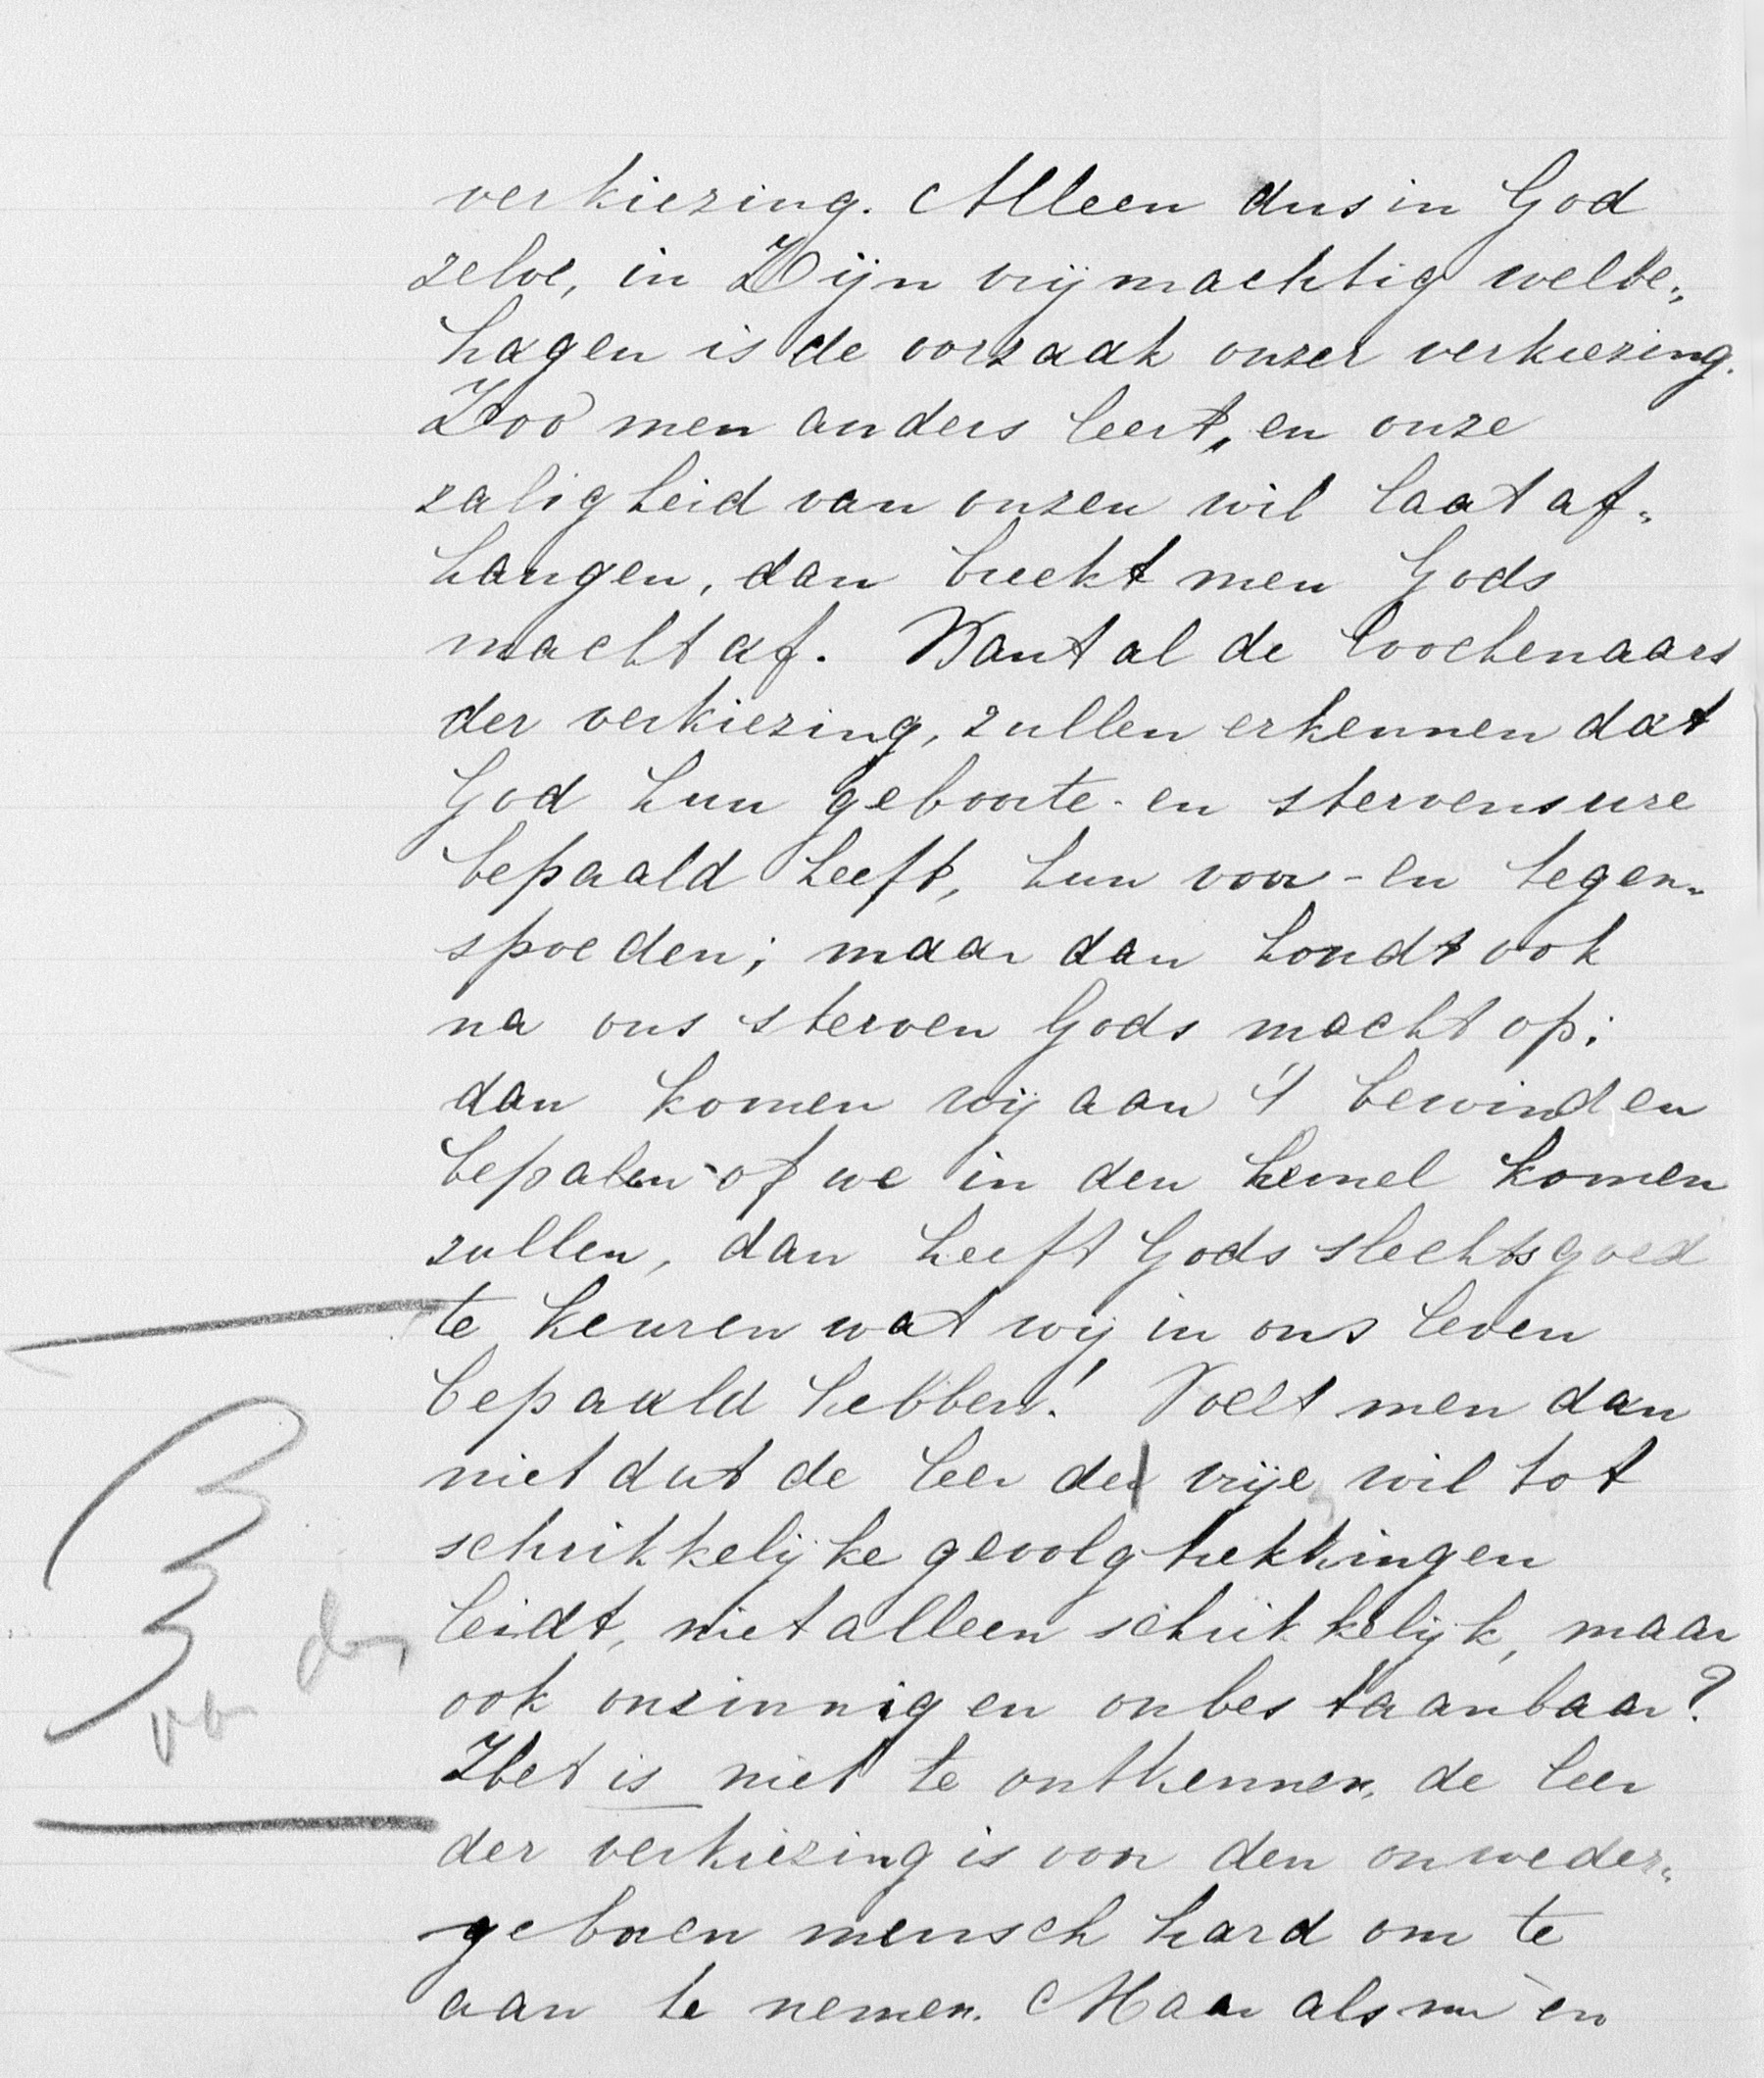 verkiezing. Alleen dus in God
zelve, in Zijn vrijmachtig welbe„
hagen is de oorzaak onzer verkiezing.
Zoo men anders leert, en onze
zaligheid van onzen wil laat af„
hangen, dan breekt men Gods
macht af. Want al de loochenaars
der verkiezing, zullen erkennen dat
God hun geboorte- en stervensure
bepaald heeft, hun voor- en tegen„
spoeden; maar dan houdt ook
na ons sterven Gods macht op;
dan komen wij aan 't bewind en
bepalen of we in den hemel komen
zullen, dan heeft Gods slechts goed
te keuren wat wij in ons leven
bepaald hebben! Voelt men dan
niet dat de leer der vrije wil tot
schrikkelijke gevolgtrekkingen
leidt, niet alleen schrikkelijk, maar
ook onzinnig en onbestaanbaar?
Het is niet te ontkennen, de leer
der verkiezing is voor den onweder„
geboren mensch hard om te
aan te nemen. Maar als nu en